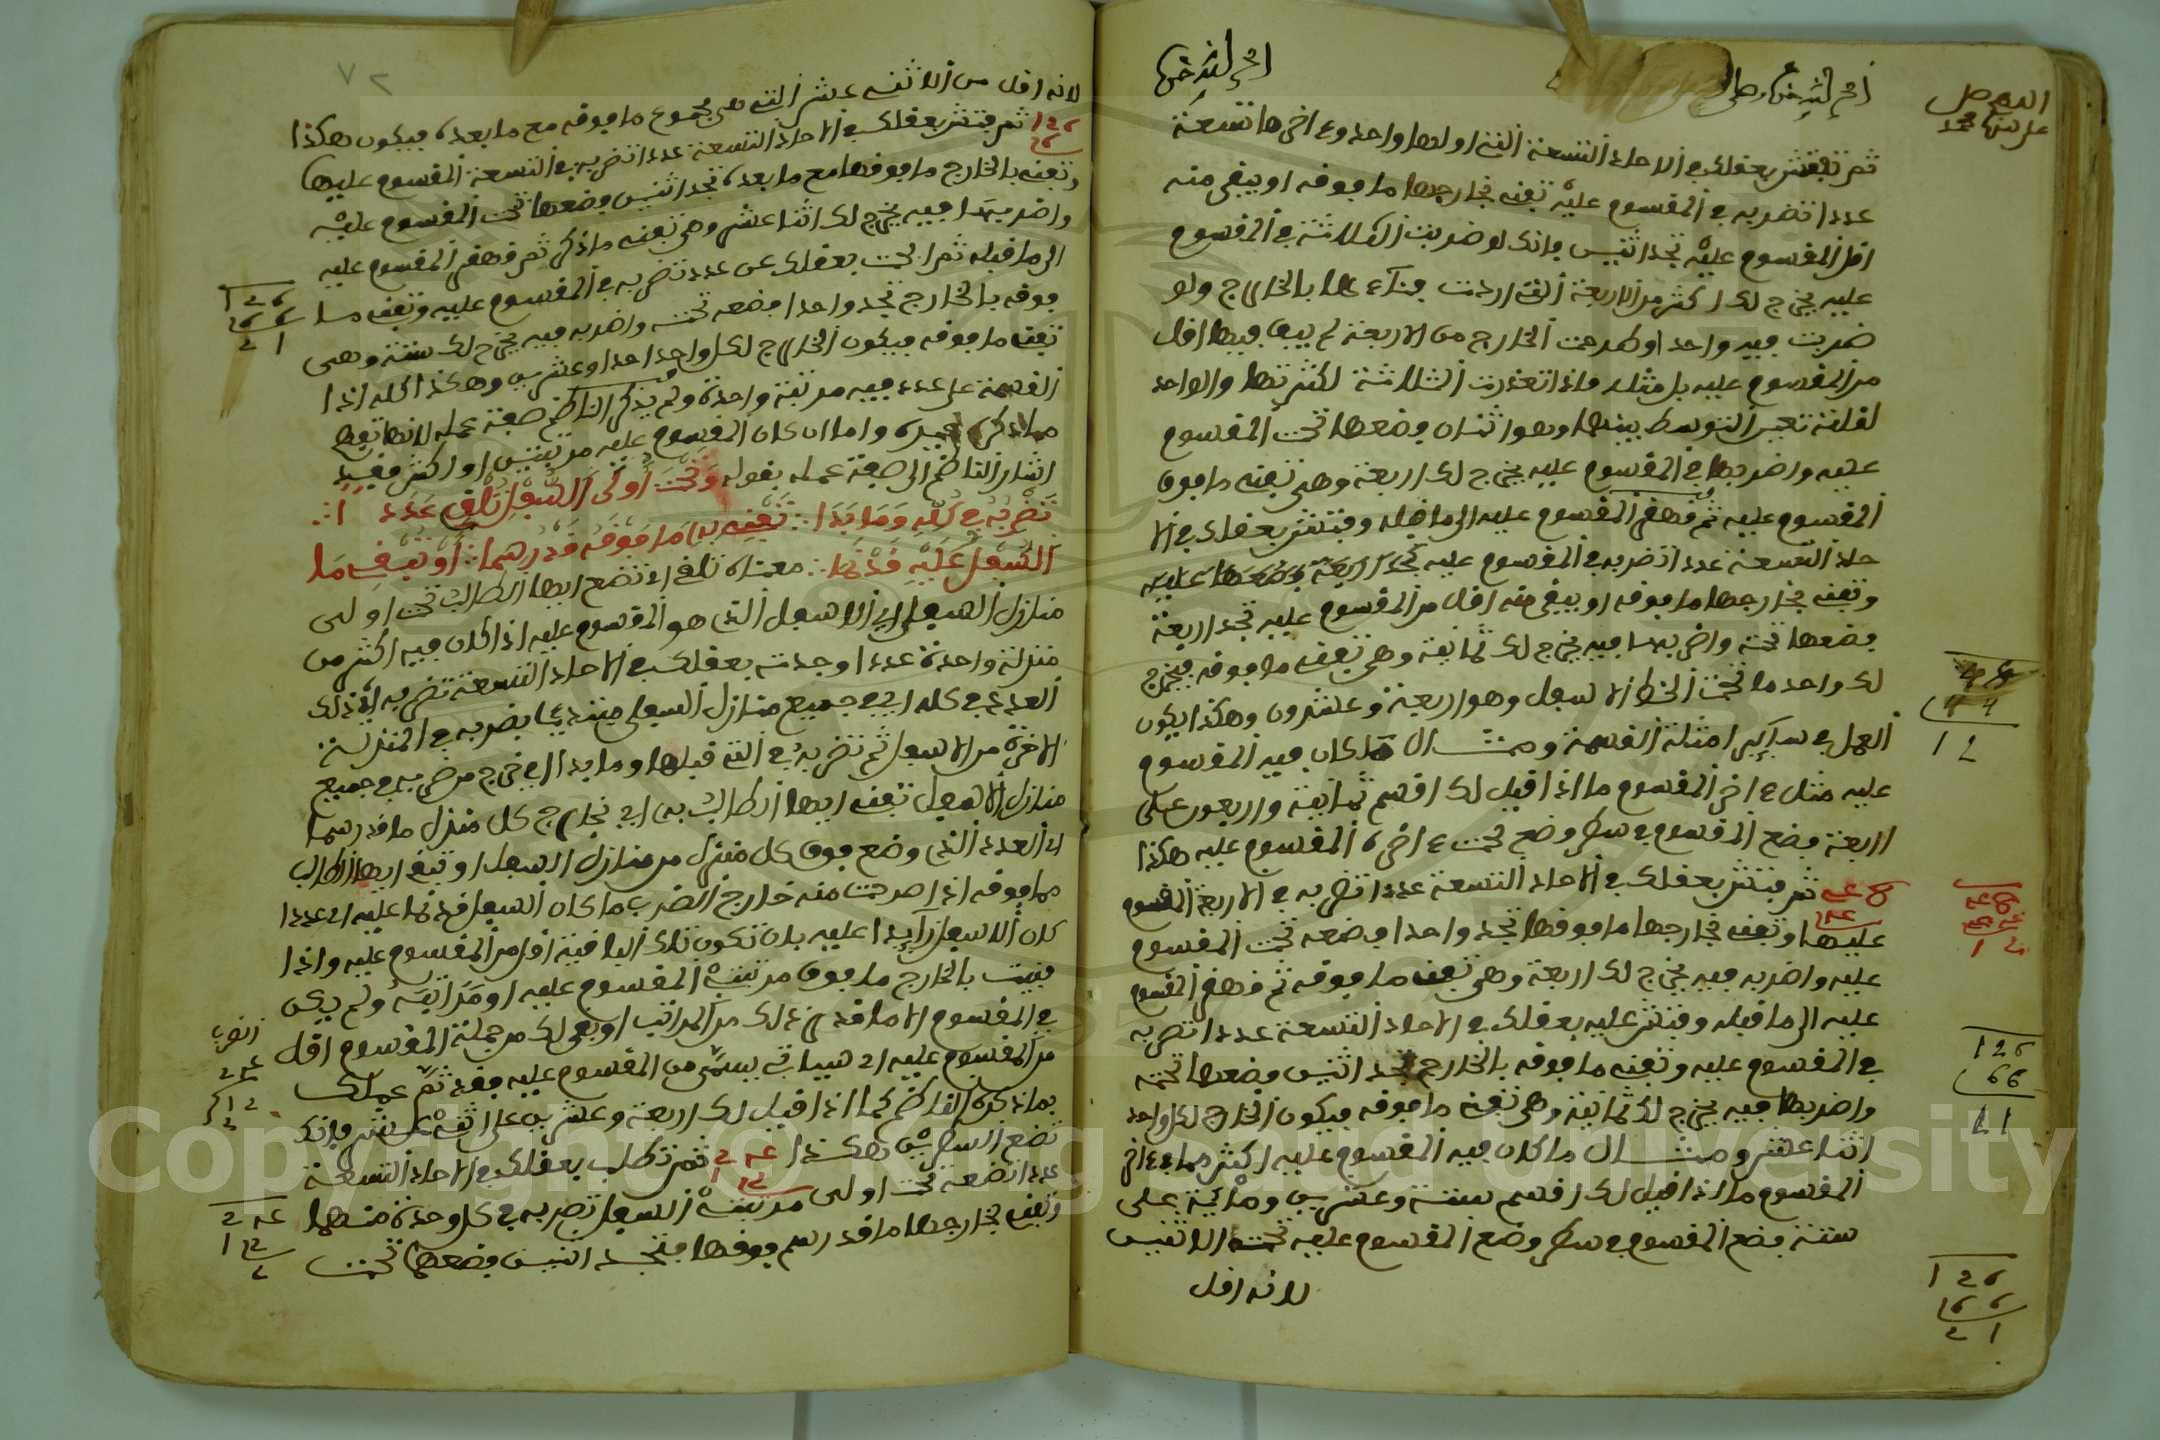 ثم تفتش بعقلك في الاحاد التسعة التي اولها واحد وءاخرها تسعة
عددا تضربه في المقسوم عليه تفني بخارجها ما فوقه او يبقى منه
اقل من المقسوم عليه تجد اثنين فانك لو ضربت الثلاثة في المقسوم
عليه يخرج لك اكثر من الاربعة التي اردت بالخارج ولو
ضربت فيه واحدا وطرحت الخارج من الاربعة لم يبق فيها اقل
من المقسوم عليه بل مثله فاذا تعذرت الثلاثة لكثرتها والواحد
لقلته تعين التوسط بينهما وهو اثنان وضعها تحت المقسوم
عليه واضربها في المقسوم عليه يخرج لك اربعة وهي تفني ما فوق
المقسوم عليه ثم قهقر المقسوم عليه الى ما قبله وفتش بعقلك في الا
حاد التسعة عددا تضربه في المقسوم عليه
وتفني بخارجها ما فوقه او يبقى منه اقل من المقسوم عليه تجد اربعة
فضعها تحته واضربها فيه يخرج لك ثمانية وهي تفني ما فوقه فيخرج
لك واحد ما تحت الخط الاسفل وهو اربعة وعشرون وهكذا يكون
العمل في سائر امثلة القسمة ومثال ما كان فيه المقسوم
عليه مثل ءاخر المقسوم ما اذا قيل لك اقسم ثمانية واربعين على
اربعة فضع المقسوم في سطر وضع تحت ءاخره المقسوم عليه هكذا
ثم فتش بعقلك في الاحاد التسعة عددا تضربه في الاربعة المقسوم
عليها وتفني بخارجها ما فوقها تجد واحدا فضعه تحت المقسوم
عليه واضربه فيه يخرج لك اربعة وهي تفني ما فوقه ثم قهقر المقسوم
عليه الى ما قبله وفتش عليه بعقلك في الاحاد التسعة عددا تضربه
في المقسوم عليه وتفني ما فوقه بالخارج تجد اثنين فضعها تحته
واضربها فيه يخرج لك ثمانية وهي تفني ما فوقه فيكون الخارج لكل واحد
اثنا عشر ومثال ما كان فيه المقسوم عليه اكثر مما في ءاخر
المقسوم ما اذا قيل لك اقسم ستة وعشرين ومائة على
ستة فضع المقسوم في سطر وضع المقسوم عليه تحت الاثنين
لانه اقل
٧٢
لانه اقل من الاثني عشر التي هي مجموع ما فوقه مع ما بعده فيكون هكذا
ثم فتش بعقلك في الاحاد التسعة عددا تضربه في الستة المقسوم عليها
وتفني بالخارج ما فوقها مع ما بعده تجد اثنين فضعها تحت المقسوم عليه
واضربها فيه يخرج لك اثنا عشر وهي تفني ما ذكر ثم قهقر المقسوم عليه
الى ما قبله ثم ابحث بعقلك عن عدد تضربه في المقسوم عليه وتفني ما
فوقه بالخارج تجد واحدا فضعه تحته واضربه فيه يخرج لك ستة وهي
تفني ما فوقه فيكون الخارج لكل واحد احدا وعشرين وهكذا كله اذا
القسمة على عدد فيه مرتبة واحدة ولم يذكر الناظم صفة عمله لانها تفهم
مما ذكره واما ان كان المقسوم عليه مرتبتين او اكثر فقد
اشار الناظم الى صفة عمله بقوله وتحت اولى السفل تلقي عددا
تضربه في كله وما بدا تفني به ما فوقه قد رسما او تبقي ما
السفل عليه قد نما معناه تلقي اي تضع ايها الطالب تحت اولى
منازل السفل اي الاسفل الذي هو المقسوم عليه اذا كان فيه اكثر من
منزلة واحدة عددا وجدته بعقلك في الاحاد التسعة تضربه اي ذلك
العدد في كله اي في جميع منازل السفل فيبتدئ بضربه في المنزلة
الاخرة من الاسفل ثم تضربه في التي قبلها وما بدا اي خرج من ضربه في جميع
منازل الاسفل تفني ايها الطالب به اي بخارج كل منزل ما قد رسما
اي العدد الذي وضع فوق كل منزل من منازل السفل او تبقي ايها الطالب
مما فوقه اذا طرحت منه خارج الضرب ما كان السفل قد نما عليه اي عددا
كان الاسفل زايدا عليه بان تكون تلك الباقية اقل من المقسوم عليه واذا
فنيت بالخارج ما فوق مرتبة المقسوم عليه او مراتبه ولم يكن
في المقسوم الا ما قد من المراتب او بقي لك من جملة المقسوم اقل
من المقسوم عليه اي سيأتي يسمى من المقسوم عليه فقد تم عملك
بما ذكره الناظم كما اذا قيل لك اربعة وعشرين على اثني عشر فانك
تضع السطرين هكذا ثم تطلب بعقلك في الاحاد التسعة
عددا تضعه تحت اولى مرتبة السفل تضربه في كل واحدة منهما
وتفني بخارجها ما قد رسم فوقها فتجد اثنين فضعها تحت
Copyright © King Saud University